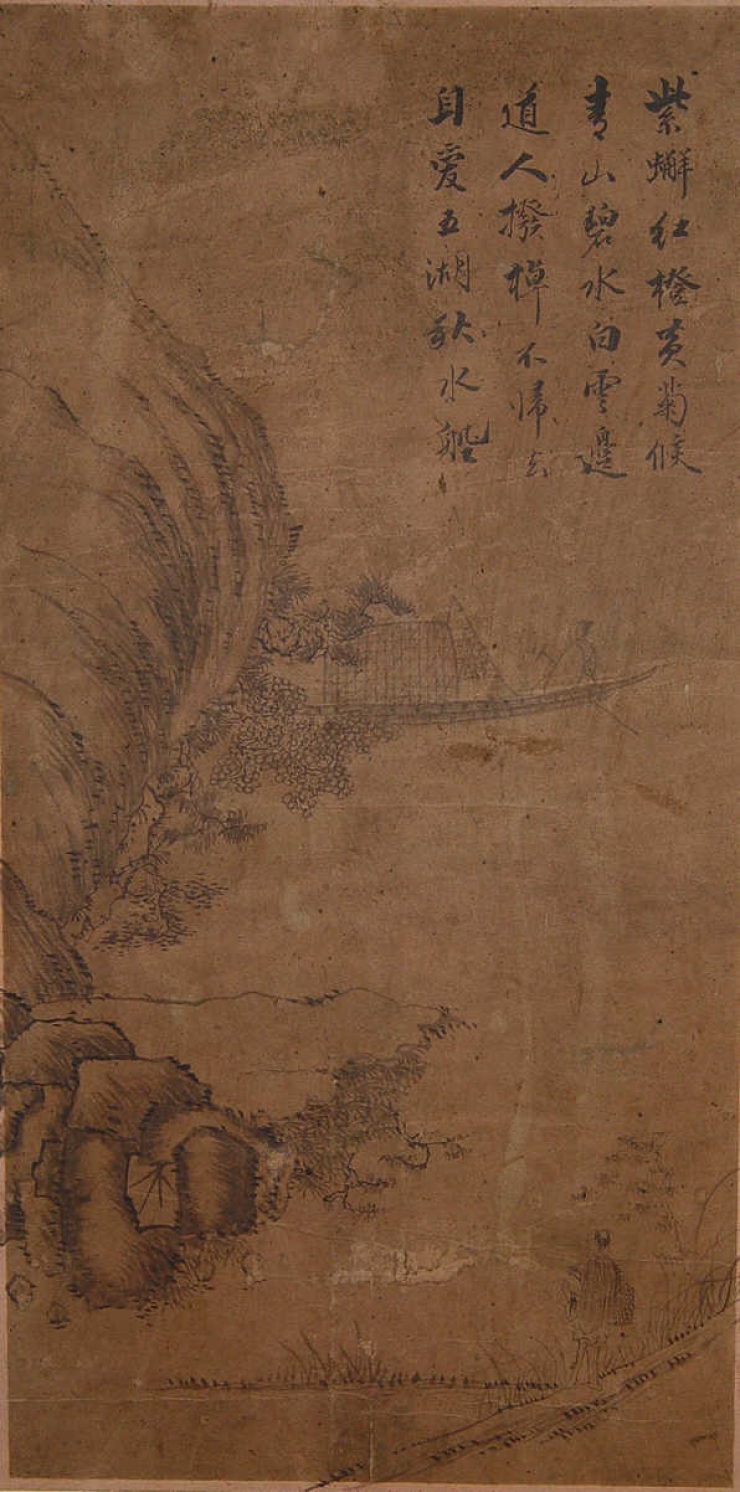 紫蠏紅橙黃菊候
青山碧水白雲邊
道人撥棹不歸去
自愛五湖秋水船